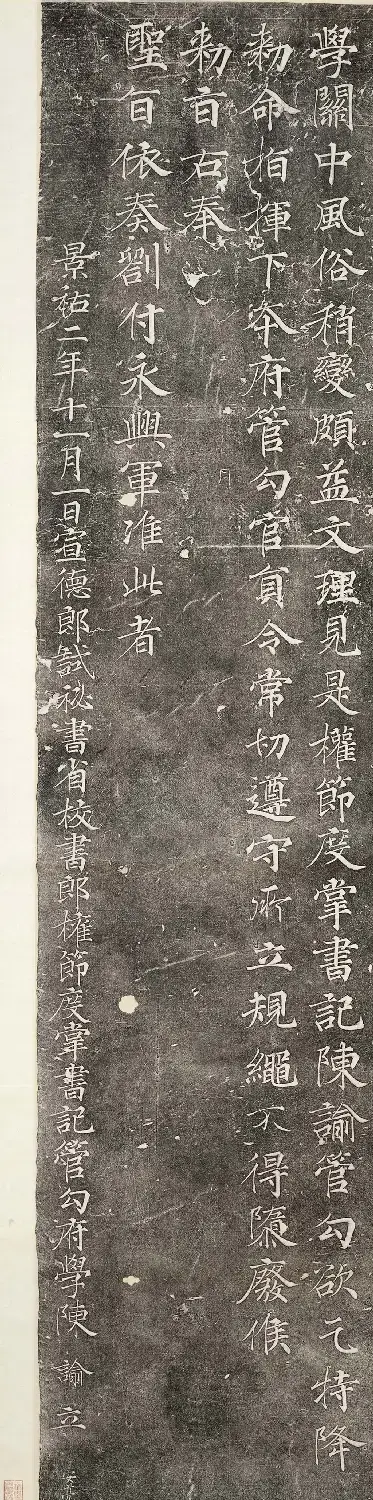 學關中風俗稍變頗益文理見是權節度掌書記陳諭管勾欲乞特降
勑命指揮下本府管勾官員令常切遵守所立規繩不得隳廢候
勑旨右奉
聖旨依奏劄付永興軍准此者
景祐二年十一月一日宣德郎試祕書省校書郎權節度掌書記管勾府學陳諭立